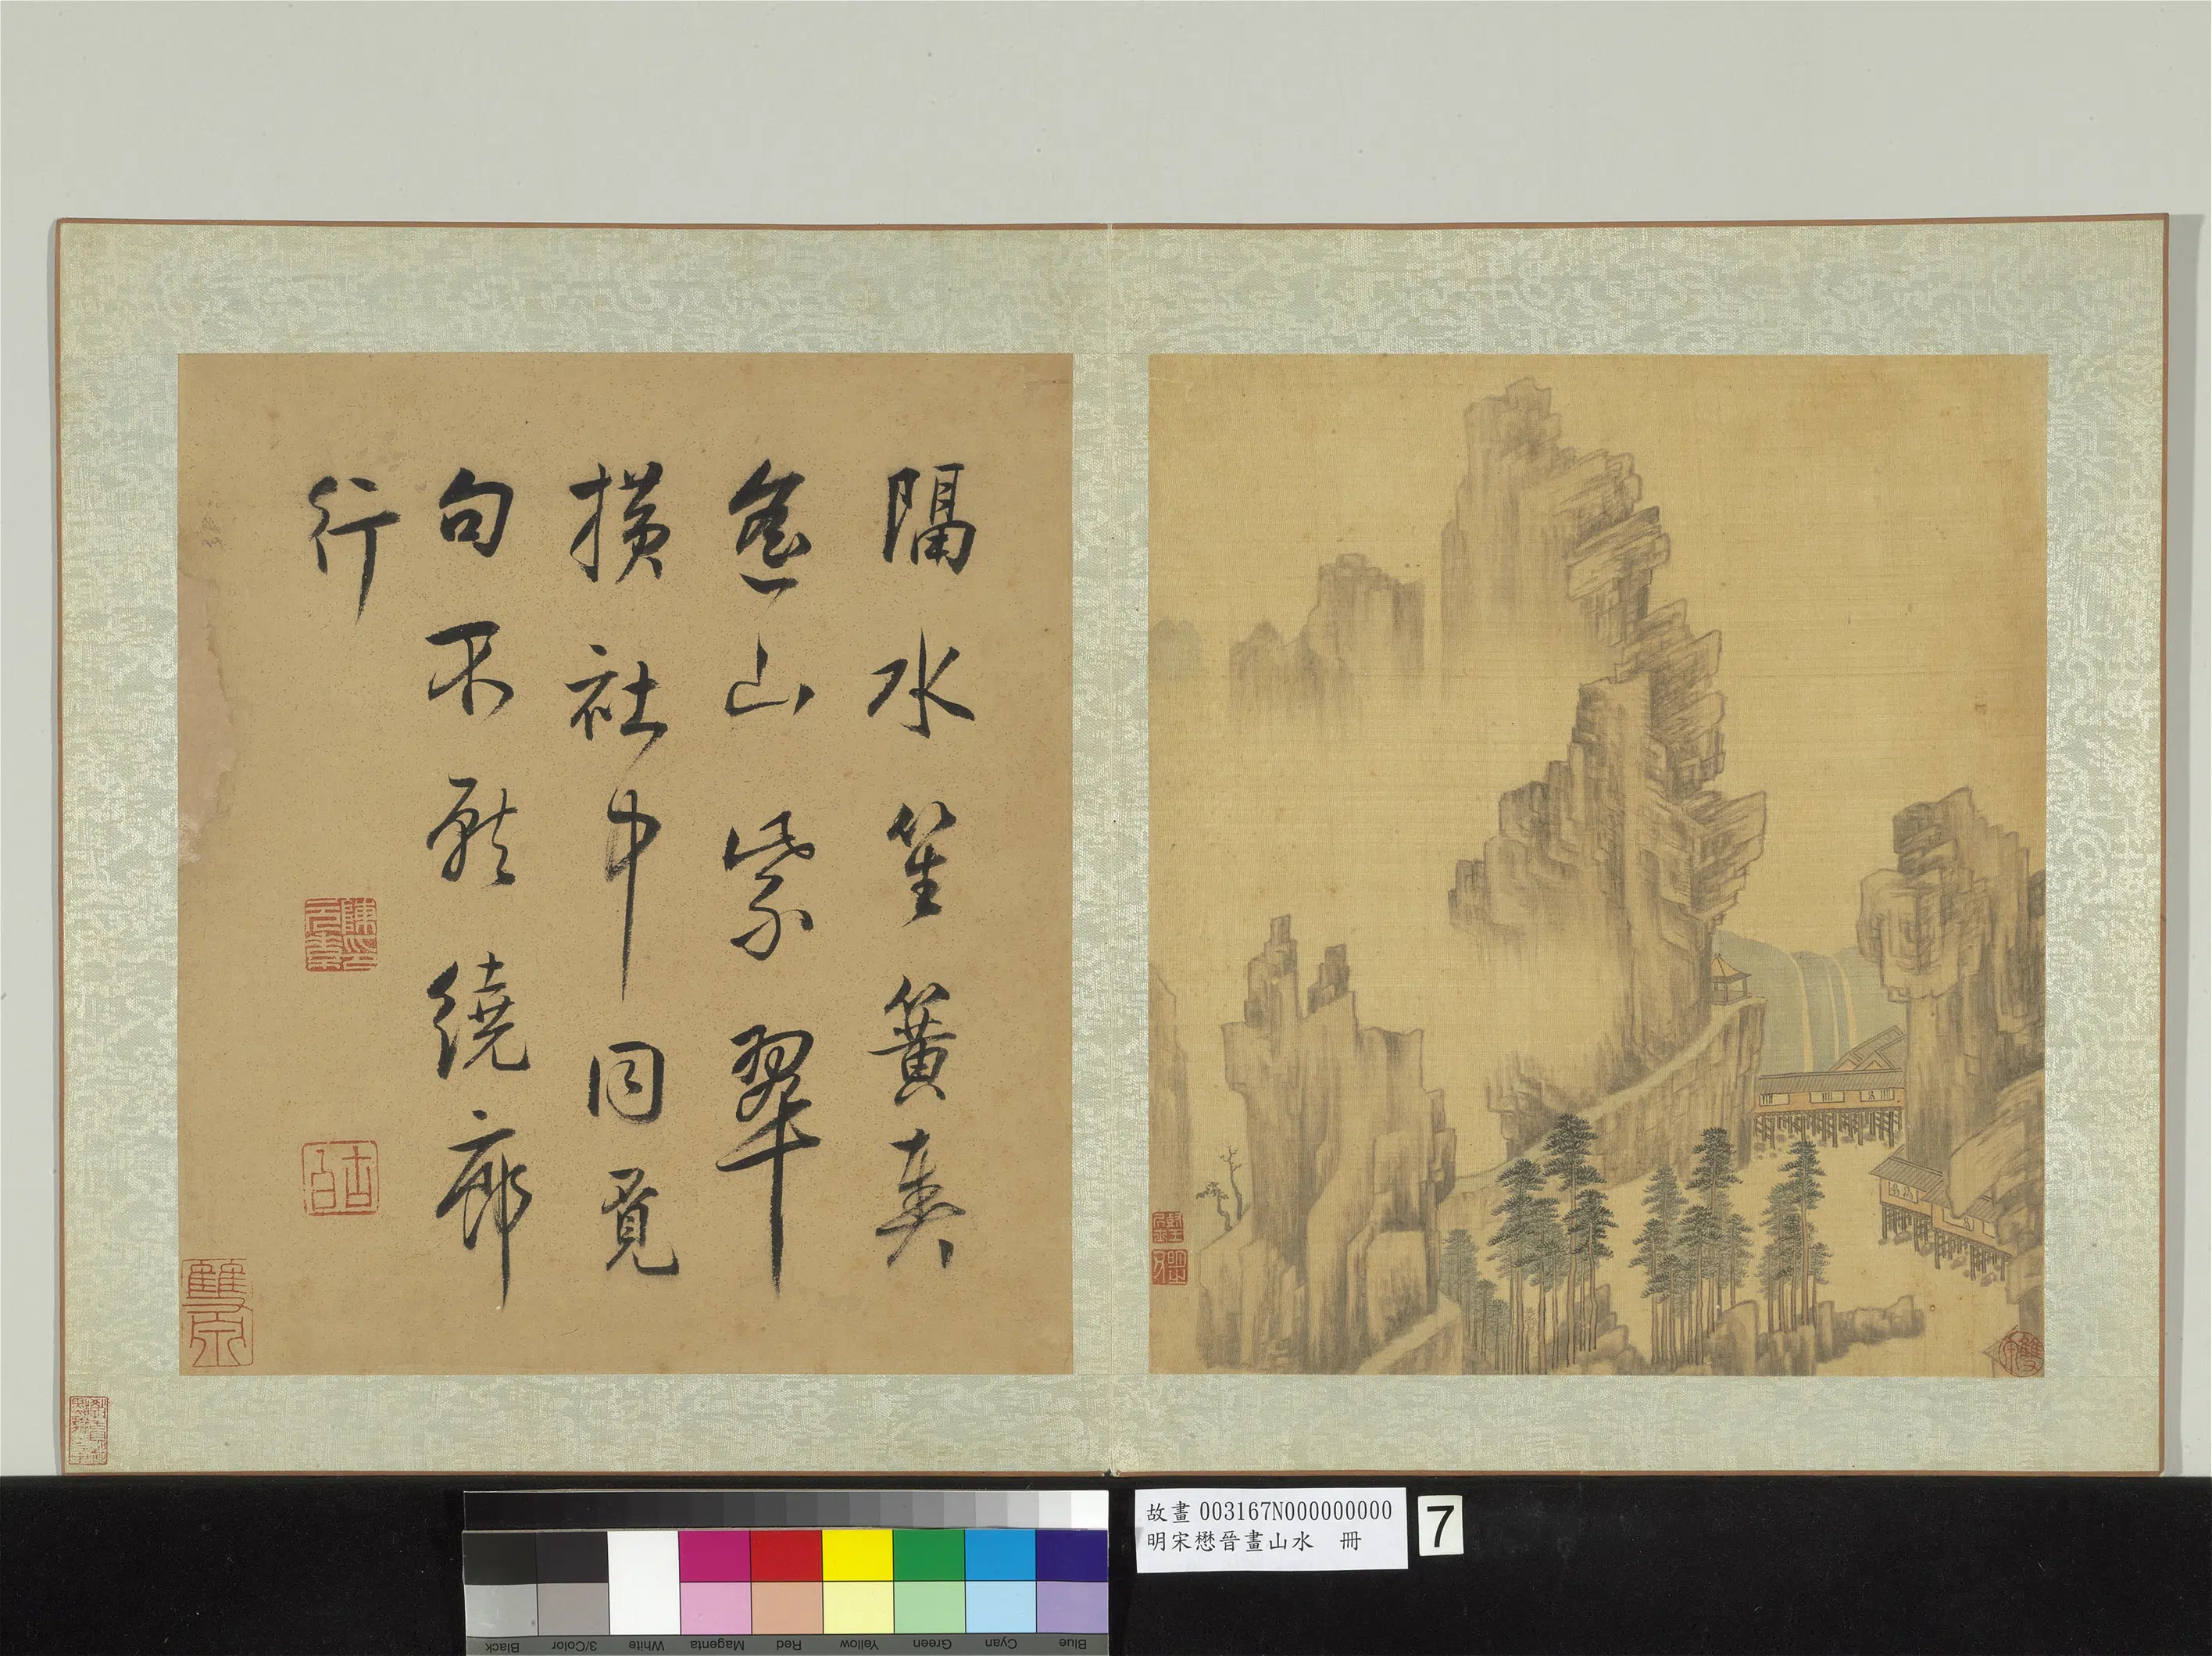 隔水笙簧奏
遙山紫翠
橫社中同覓
句不厭繞廊
行
故畫 003167N000000000
明宋懋晉畫山水 冊
7
Black
3/Color
White
Magenta
Red
Yellow
Green
Cyan
Blue